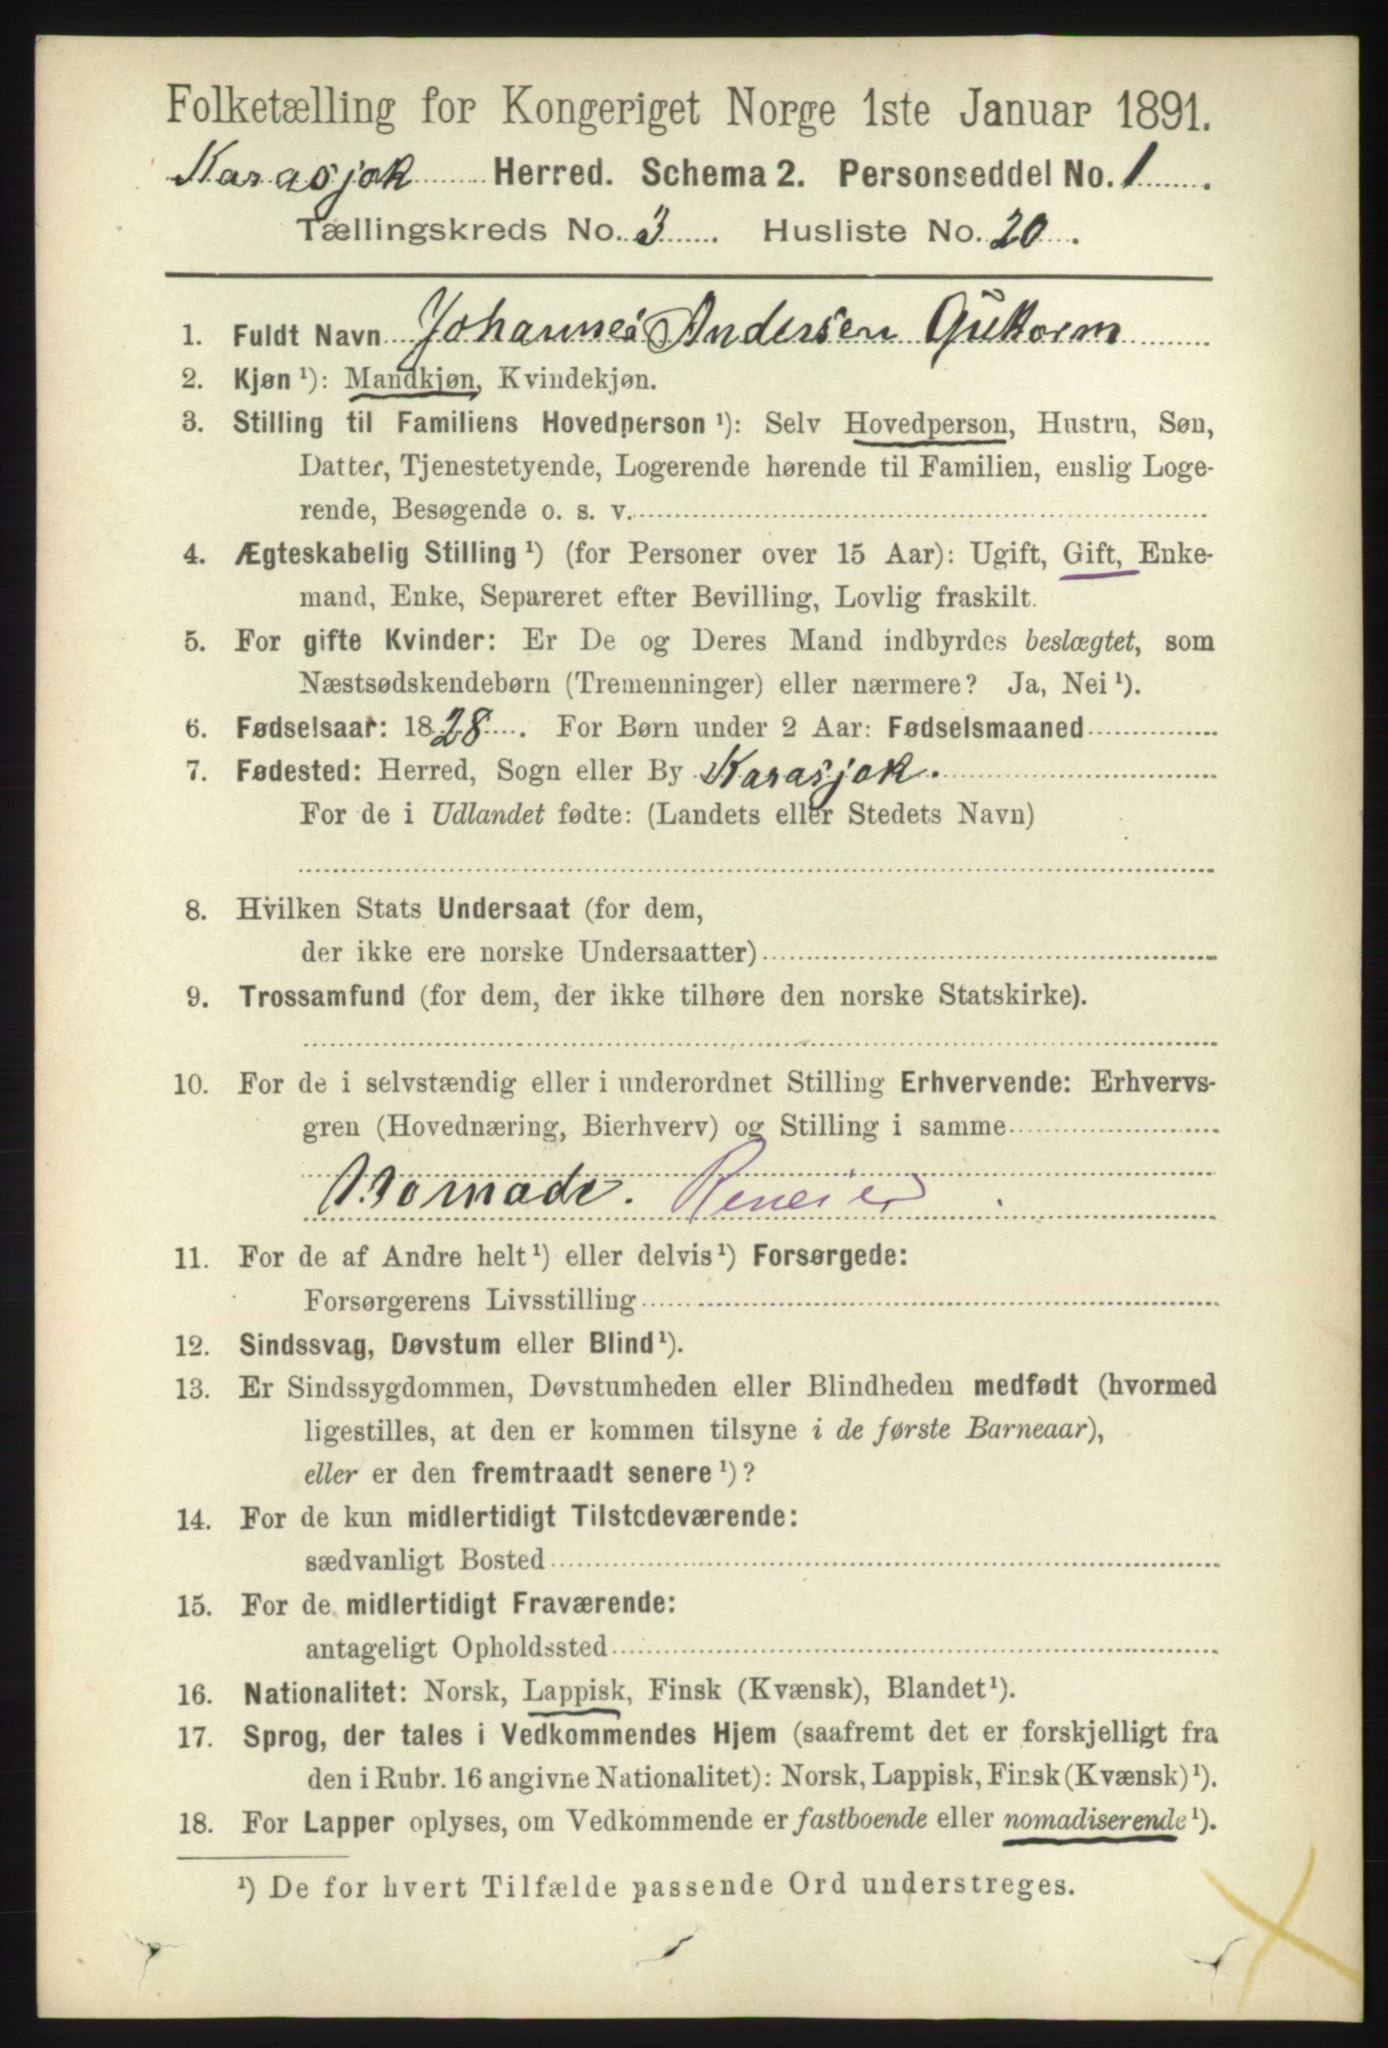 Folketælling for Kongeriget Norge 1ste Januar 1891.
Karasjok Herred. Schema 2. Personseddel No. 1
Tællingskreds No. 3. Husliste No. 20.
1. Fuldt Navn Johannes Andersen Guttorm
2. Kjøn ¹): Mandkjøn, Kvindekjøn.
3. Stilling til Familiens Hovedperson ¹): Selv Hovedperson, Hustru, Søn,
Datter, Tjenestetyende, Logerende hørende til Familien, enslig Loge-
rende, Besøgende o. s. v.
4. Ægteskabelig Stilling ¹) (for Personer over 15 Aar): Ugift, Gift, Enke-
mand, Enke, Separeret efter Bevilling, Lovlig fraskilt.
5. For gifte Kvinder: Er De og Deres Mand indbyrdes beslægtet, som
Næstsødskendebørn (Tremenninger) eller nærmere? Ja, Nei ¹).
6. Fødselsaar: 1828. For Børn under 2 Aar: Fødselsmaaned
7. Fødested: Herred, Sogn eller By Karasjok.
For de i Udlandet fødte: (Landets eller Stedets Navn)
8. Hvilken Stats Undersaat (for dem,
der ikke ere norske Undersaatter)
9. Trossamfund (for dem, der ikke tilhøre den norske Statskirke).
10. For de i selvstændig eller i underordnet Stilling Erhvervende: Erhvervs-
gren (Hovednæring, Bierhverv) og Stilling i samme
Nomade. Reneier
11. For de af Andre helt ¹) eller delvis ¹) Forsørgede:
Forsørgerens Livsstilling
12. Sindssvag, Døvstum eller Blind ¹).
13. Er Sindssygdommen, Døvstumheden eller Blindheden medfødt (hvormed
ligestilles, at den er kommen tilsyne i de første Barneaar),
eller er den fremtraadt senere ¹)?
14. For de kun midlertidigt Tilstedeværende:
sædvanligt Bosted
15. For de midlertidigt Fraværende:
antageligt Opholdssted
16. Nationalitet: Norsk, Lappisk, Finsk (Kvænsk), Blandet ¹).
17. Sprog, der tales i Vedkommendes Hjem (saafremt det er forskjelligt fra
den i Rubr. 16 angivne Nationalitet): Norsk, Lappisk, Finsk (Kvænsk) ¹).
18. For Lapper oplyses, om Vedkommende er fastboende eller nomadiserende ¹).
¹) De for hvert Tilfælde passende Ord understreges.